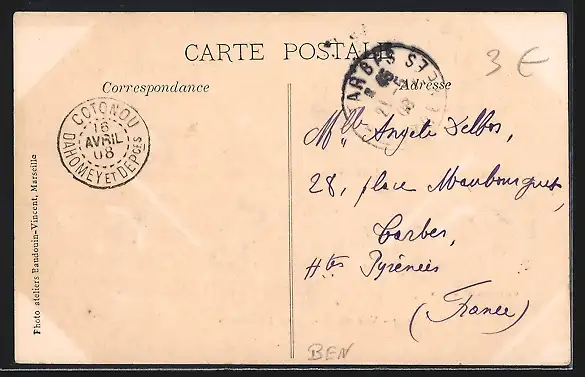 CARTE POSTALE
3 €
Correspondance
Adresse
COTONOU
16
AVRIL
08
DAHOMEY ET DEPCES
TARBES
Mlle Angèle Delbos,
28, place Maubourguet,
Tarbes,
Htes Pyrénées
(France)
Photo ateliers Baudouin-Vincent, Marseille
BEN